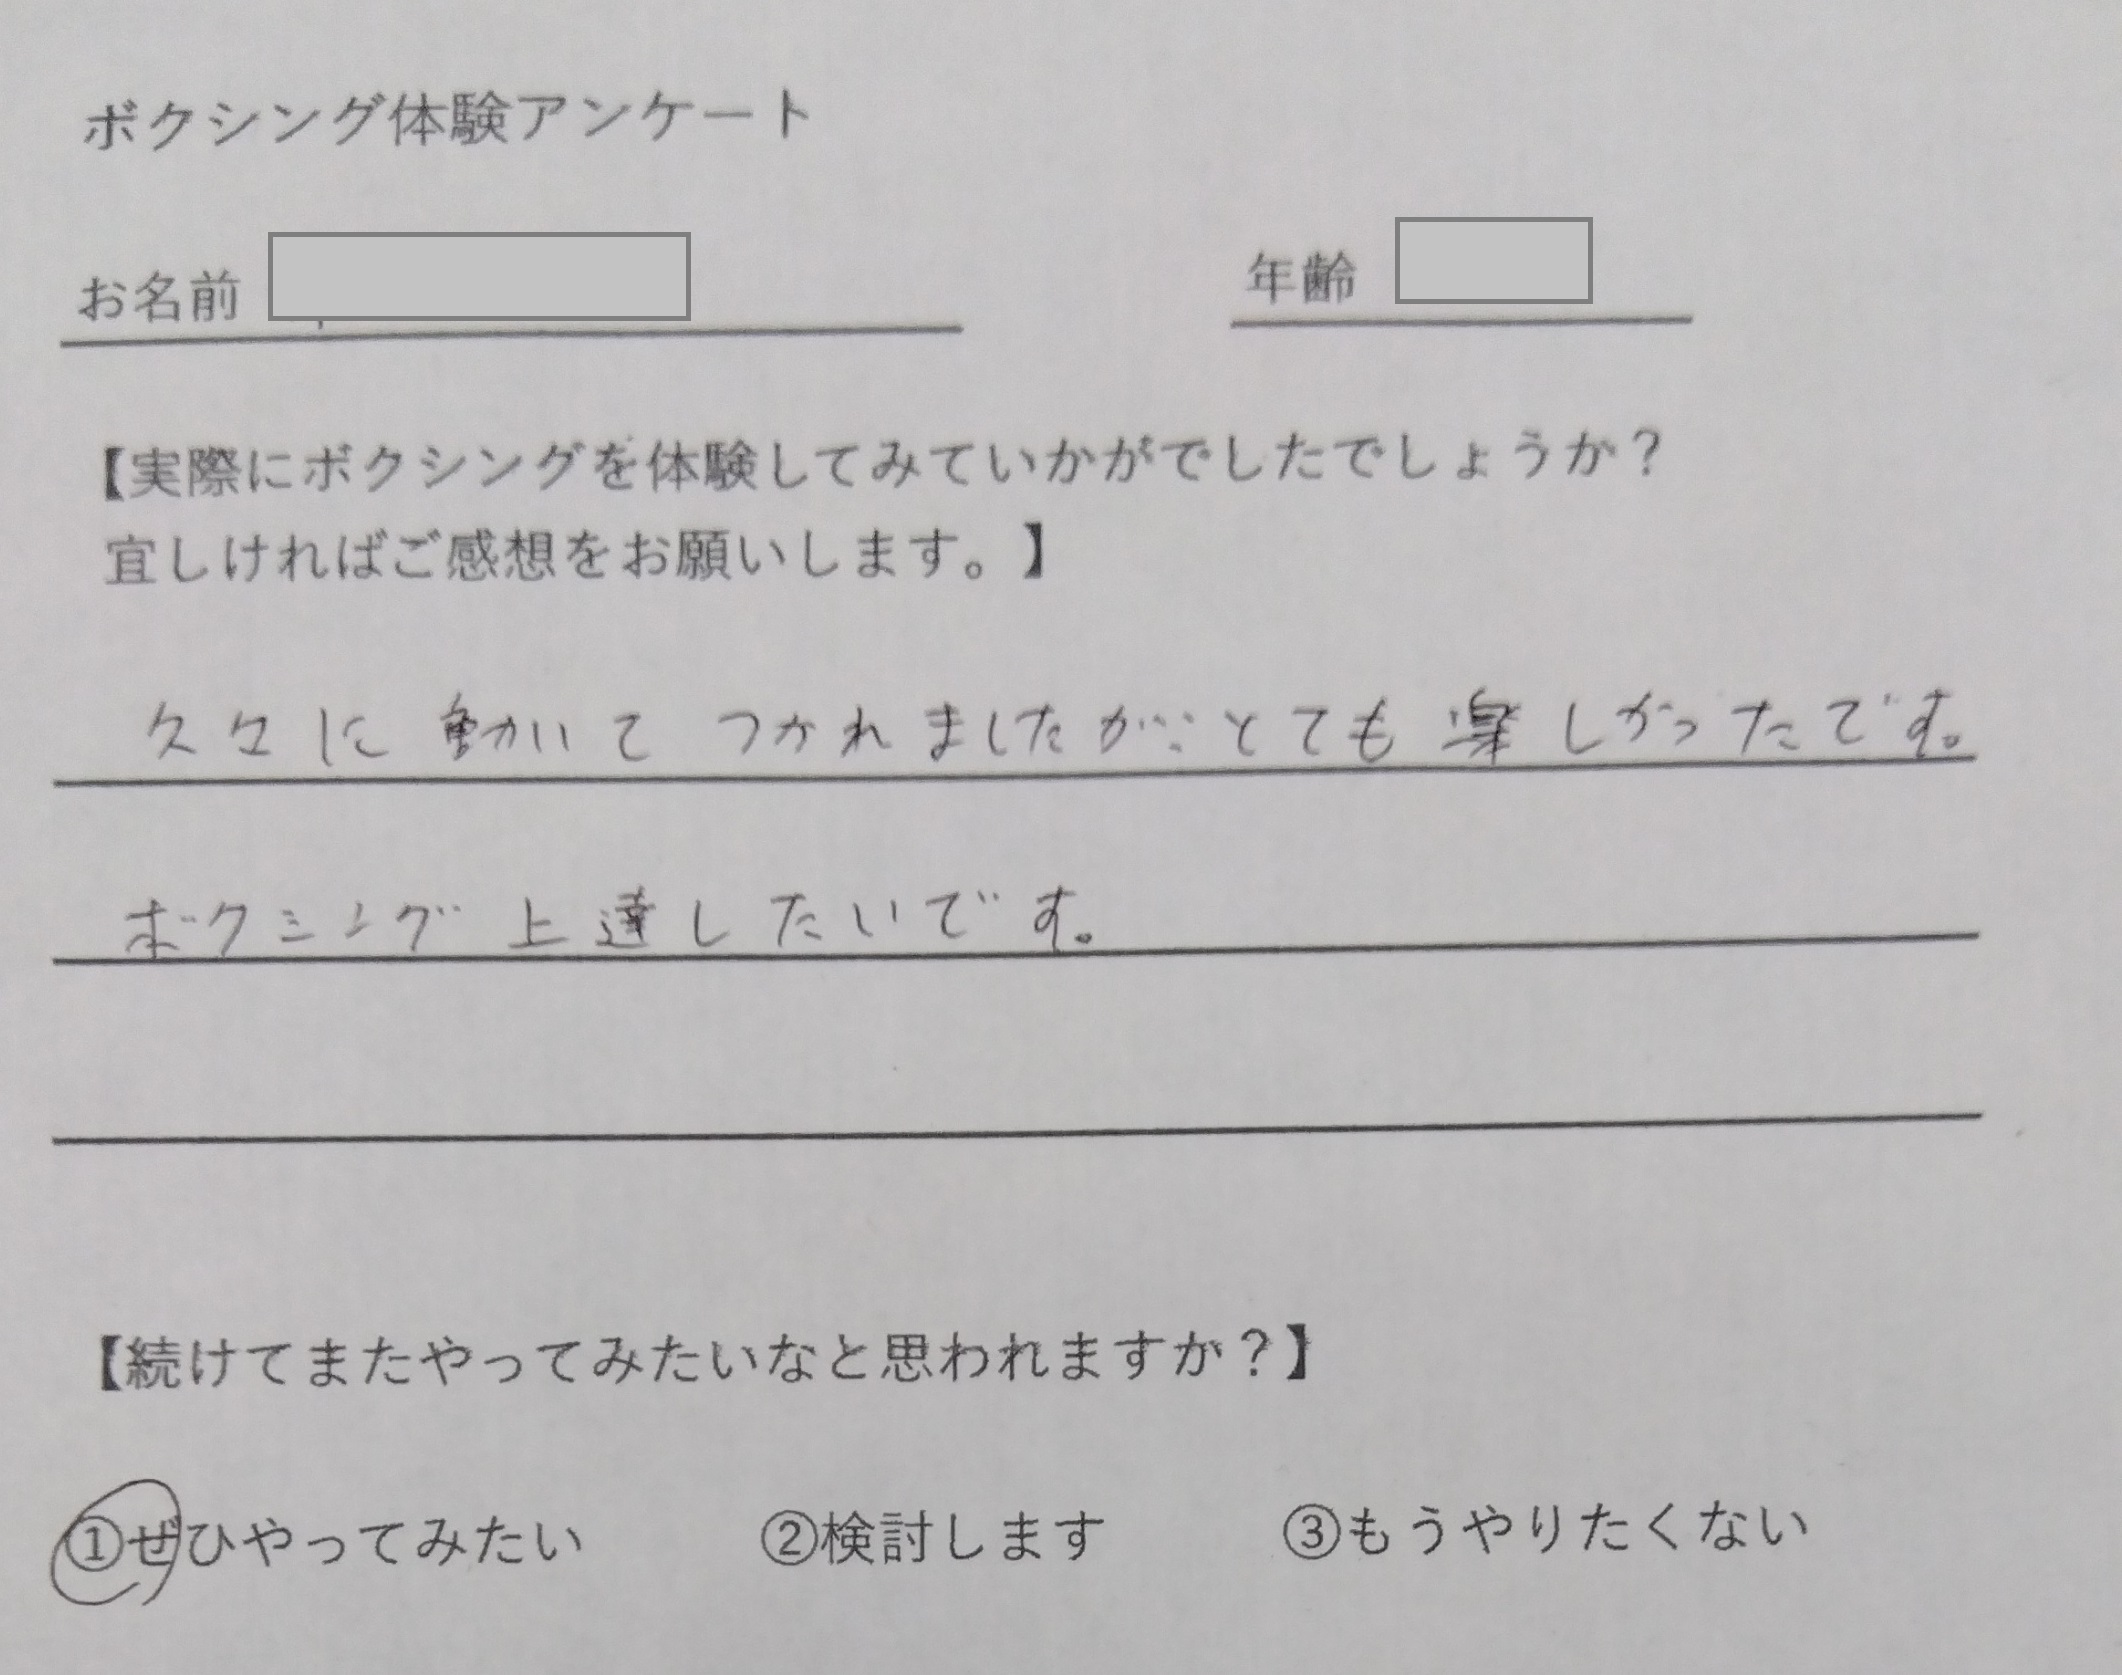 ボクシング体験アンケート
お名前 年齢
【実際にボクシングを体験してみていかがでしたでしょうか？
宜しければご感想をお願いします。】
久々に動いてつかれましたが、とても楽しかったです。
ボクシング上達したいです。
【続けてまたやってみたいなと思われますか？】
①ぜひやってみたい ②検討します ③もうやりたくない